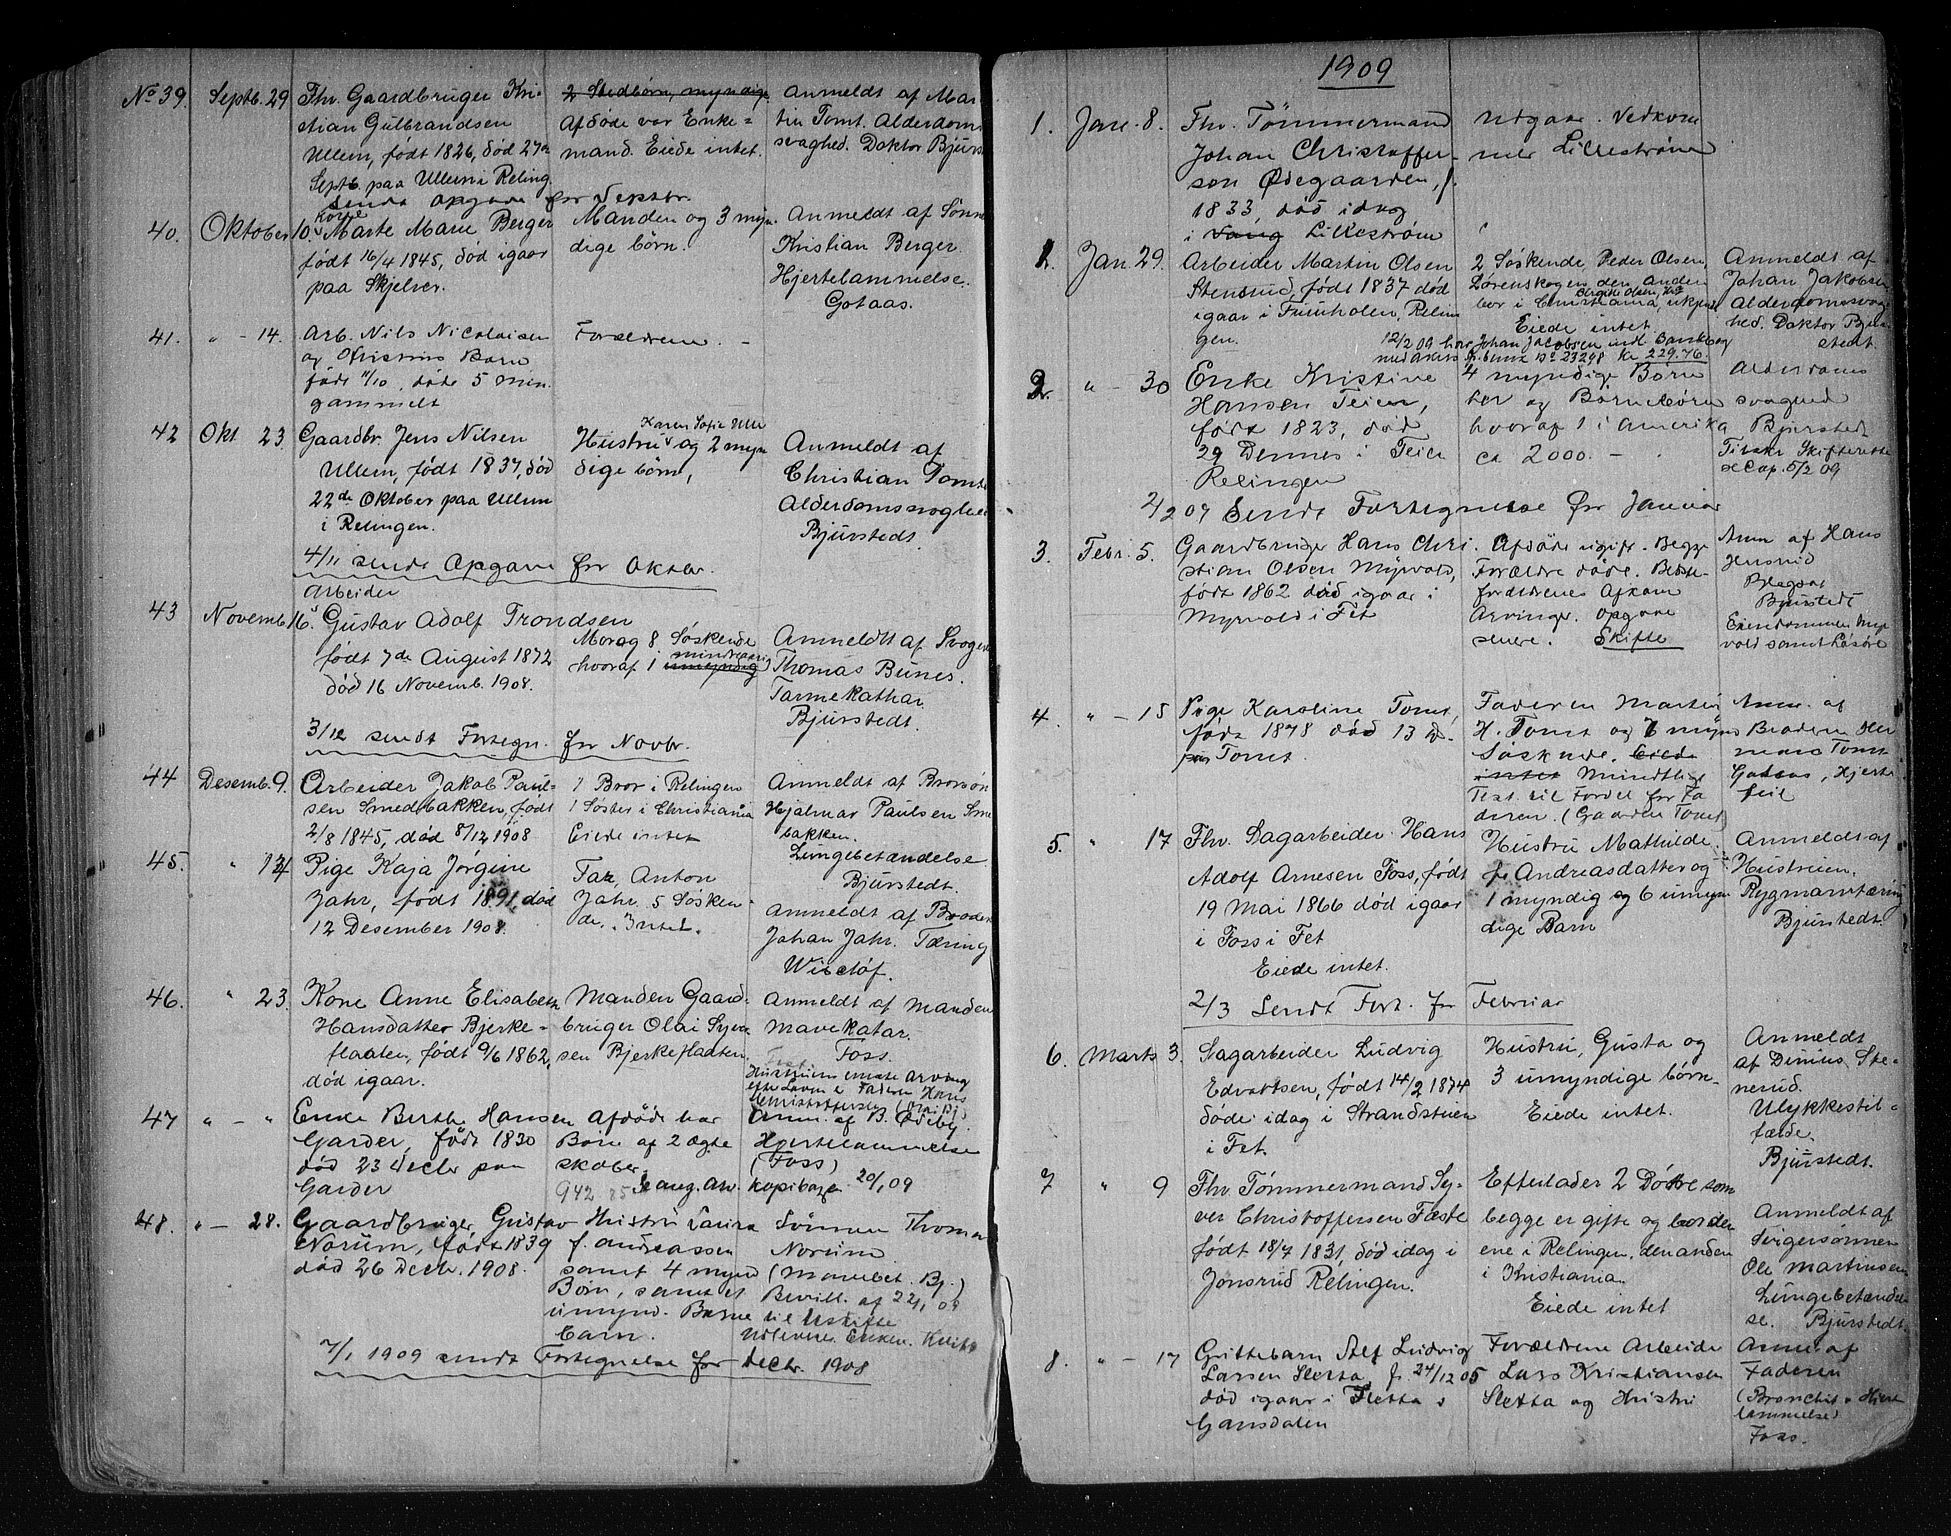 No 39. Septb. 29 Fhv. Gaardbruger Kri-
stian Gulbrandsen
Ullern, født 1826, død 27de
Septb. paa Ullern i Reling.
2 Stedbørn, myndige
Afdøde var Enke=
mand. Eiede intet.
Anmeldt af Mar-
tin Tomt. Alderdoms
svaghed. Doktor Bjurst
Sendt Opgave for Septbr.
40. Oktober 10. Kone Marte Marie Berger
født 16/4 1845, død igaar
paa Skjelver.
Manden og 3 myn-
dige børn.
Anmeldt af Sønn
Kristian Berger.
Hjertelammelse.
Gotaas.
41. " - 14. Arb. Nils Nicolaisen
og Hustrus Barn
født 11/10, døde 5 min.
gammelt
Forældrene. -
42 Okt 23. Gaardbr. Jens Nilsen
Ullern, født 1837, død
22de Oktober paa Ullern
i Relingen.
Karen Sofie Ulle
Hustru og 2 myn
dige børn,
Anmeldt af
Christian Tomt
Alderdomssvaghed
Bjurstedt.
4/11 sendt Opgave for Oktbr.
43 Novemb. 16. Arbeider
Gustav Adolf Trondsen
født 7de August 1872
død 16 Novemb. 1908.
Mor og 8 Søskende
hvoraf 1 mindreaarig
umyndig
Anmeldt af Svoger
Thomas Bunes.
Tarmekathar
Bjurstedt.
3/12 sendt Fortegn. for Novbr.
44 Desemb. 9. Arbeider Jakob Paul-
sen Smedbakken, født
2/8 1845, død 8/12 1908
1 Bror i Relingen
1 Søster i Christiania
Eiede intet
Anmeldt af Brorsøn
Hjalmar Paulsen Sme
bakken.
Lungebetændelse
Bjurstedt.
45. " 12 Pige Kaja Jørgine
Jahr, født 1891, død
12 Desember 1908.
Far, Anton
Jahr. 5 Søsken-
de. Intet.
Anmeldt af Broder
Johan Jahr. Tæring
Wisløf.
46. " 23. Kone Anne Elisabeth
Hansdatter Bjerke=
flaaten, født 9/6 1862,
død igaar.
Manden Gaard-
bruger Olai Syver
sen Bjerkeflaaten.
Anmeldt af Manden
Mavekatar.
Foss.
Hustruens eneste Arving
efter Loven er Faderen Hans
Christoffersen
47 " - " Enke Berthe Hansen
Garder, født 1830
død 23 Decbr paa
Garder
Afdøde har
Børn af 2 ægte
skaber.
Anm. af B. Ødeby.
Hjertelammelse
(Foss)
942 kopibage 20/1 09
48. " - 28. Gaardbruger Gustav
Norum, født 1839
død 26 Decbr. 1908.
Hustru Laura
f. Andreassen
samt 4 mynd
Børn, samt et
umynd. Barne
barn.
Sønnen Thomas
Norum
(Mavebet. Bj.)
Bevill. af 22/1 09
til Uskifte
Udlevere Enken.
7/1 1909 sendt Fortegnelse for Decbr. 1908
1909
1. Jan. 8. Fhv. Tømmermand
Johan Christoffer-
sen Ødegaarden, f.
1833, død idag
i Vang Lillestrøm
Udgaar. Vedkom
mer Lillestrøm
1. Jan. 29. Arbeider Martin Olsen
Stensrud, født 1837 død
igaar i Furuholen, Relin
gen.
2 Søskende, Peder Olsen,
Lørenskogen den anden
bor i Christiania, ukjent
Eiede intet.
Anmeldt af
Johan Jakobsen
Alderdomssvag
hed. Doktor Bjur
stedt.
12/2 09 har Johan Jacobsen indl. Bankbog
med Akers Sp.bank No 23248 kr 229.76.
2. " - 30 Enke Kristine
Hansen Teien,
født 1823, død
29 Dennes i Teien
Relingen
4 myndige Børn
her og Børnebørn
hvoraf 1 i Amerika
ca 2000. -
Alderdoms
svaghed
Bjurstedt
Tilskr Skifteretten
se Cop. 5/2 09
4/2 09 Sendt Fortegnelse for Januar
3. Febr. 5. Gaardbruger Hans Chri-
stian Olsen Myrvold,
født 1862 død igaar i
Myrvold i Fet
Afdøde ugift. Begge
Forældre døde. Bedste
forældrenes Afkom
Arvinger. Opgave
senere. Skifte
Anm af Hans
Hersrud
Bjurstedt
Eiendommen Myr
vold samt Løsøre
4. " - 15 Pige Karoline Tomt,
født 1878 død 13 ds.
paa Tomt.
Faderen Martin
H. Tomt og 7 mynd
Søskende. Eiede
intet Mundtlige
Test. til Fordel for Fa
deren. (Gaarden Tomt)
Anm. af
Broderen Her
mans Tomt
Gotaas, Hjerte
feil
5. " 17 Fhv. Sagarbeider Hans
Adolf Arnesen Foss, født
19 Mai 1866 død igaar
i Foss i Fet
Eiede intet.
Hustru Mathilde
f. Andreasdatter og
1 myndig og 6 umyn
dige Barn
Anmeldt af
Hustruen.
Rygmarvtæring
Bjurstedt.
2/3 Sendt Fort. for Februar
6. Marts 3. Sagarbeider Ludvig
Edvartsen, født 14/2 1874
døde idag i Strandstuen
i Fet.
Hustru, Gusta og
3 umyndige børn.
Eiede intet.
Anmeldt
af Dinius Ste-
nerud.
Ulykkestil=
fælde.
Bjurstedt.
7 " 9 Fhv. Tømmermand Sy-
ver Christoffersen Fæste
født 18/7 1831, død idag i
Jonsrud Relingen.
Efterlader 2 Døtre som
begge er gifte og bor den
ene i Relingen, den anden
i Kristiania.
Eiede intet
Anmeldt af
Svigersønnen
Ole Martinsen
Lungebetændel
se. Bjurstedt.
8. " - 17 Guttebarn Alf Ludvig
Larsen Sletta, f. 24/12 05
død igaar i Sletta i
Gansdalen
Forældrene Arbeider
Lars Kristiansen
Sletta og Hustru
Anm. af
Faderen
(Bronchit. + Hjerte
lammelse)
Foss.